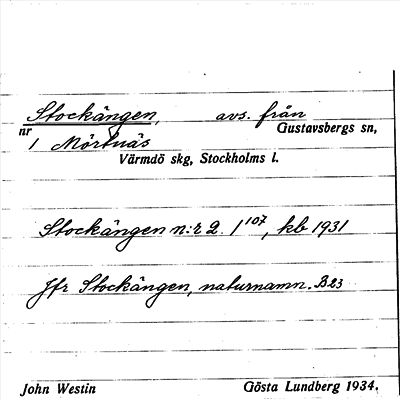 Stockängen, avs. från
Gustavsbergs sn,
nr 1 Mörtnäs
Värmdö skg, Stockholms l.
Stockängen n:r 2. 1¹⁰⁷, kb 1931
Jfr Stockängen, naturnamn. B23
John Westin Gösta Lundberg 1934.